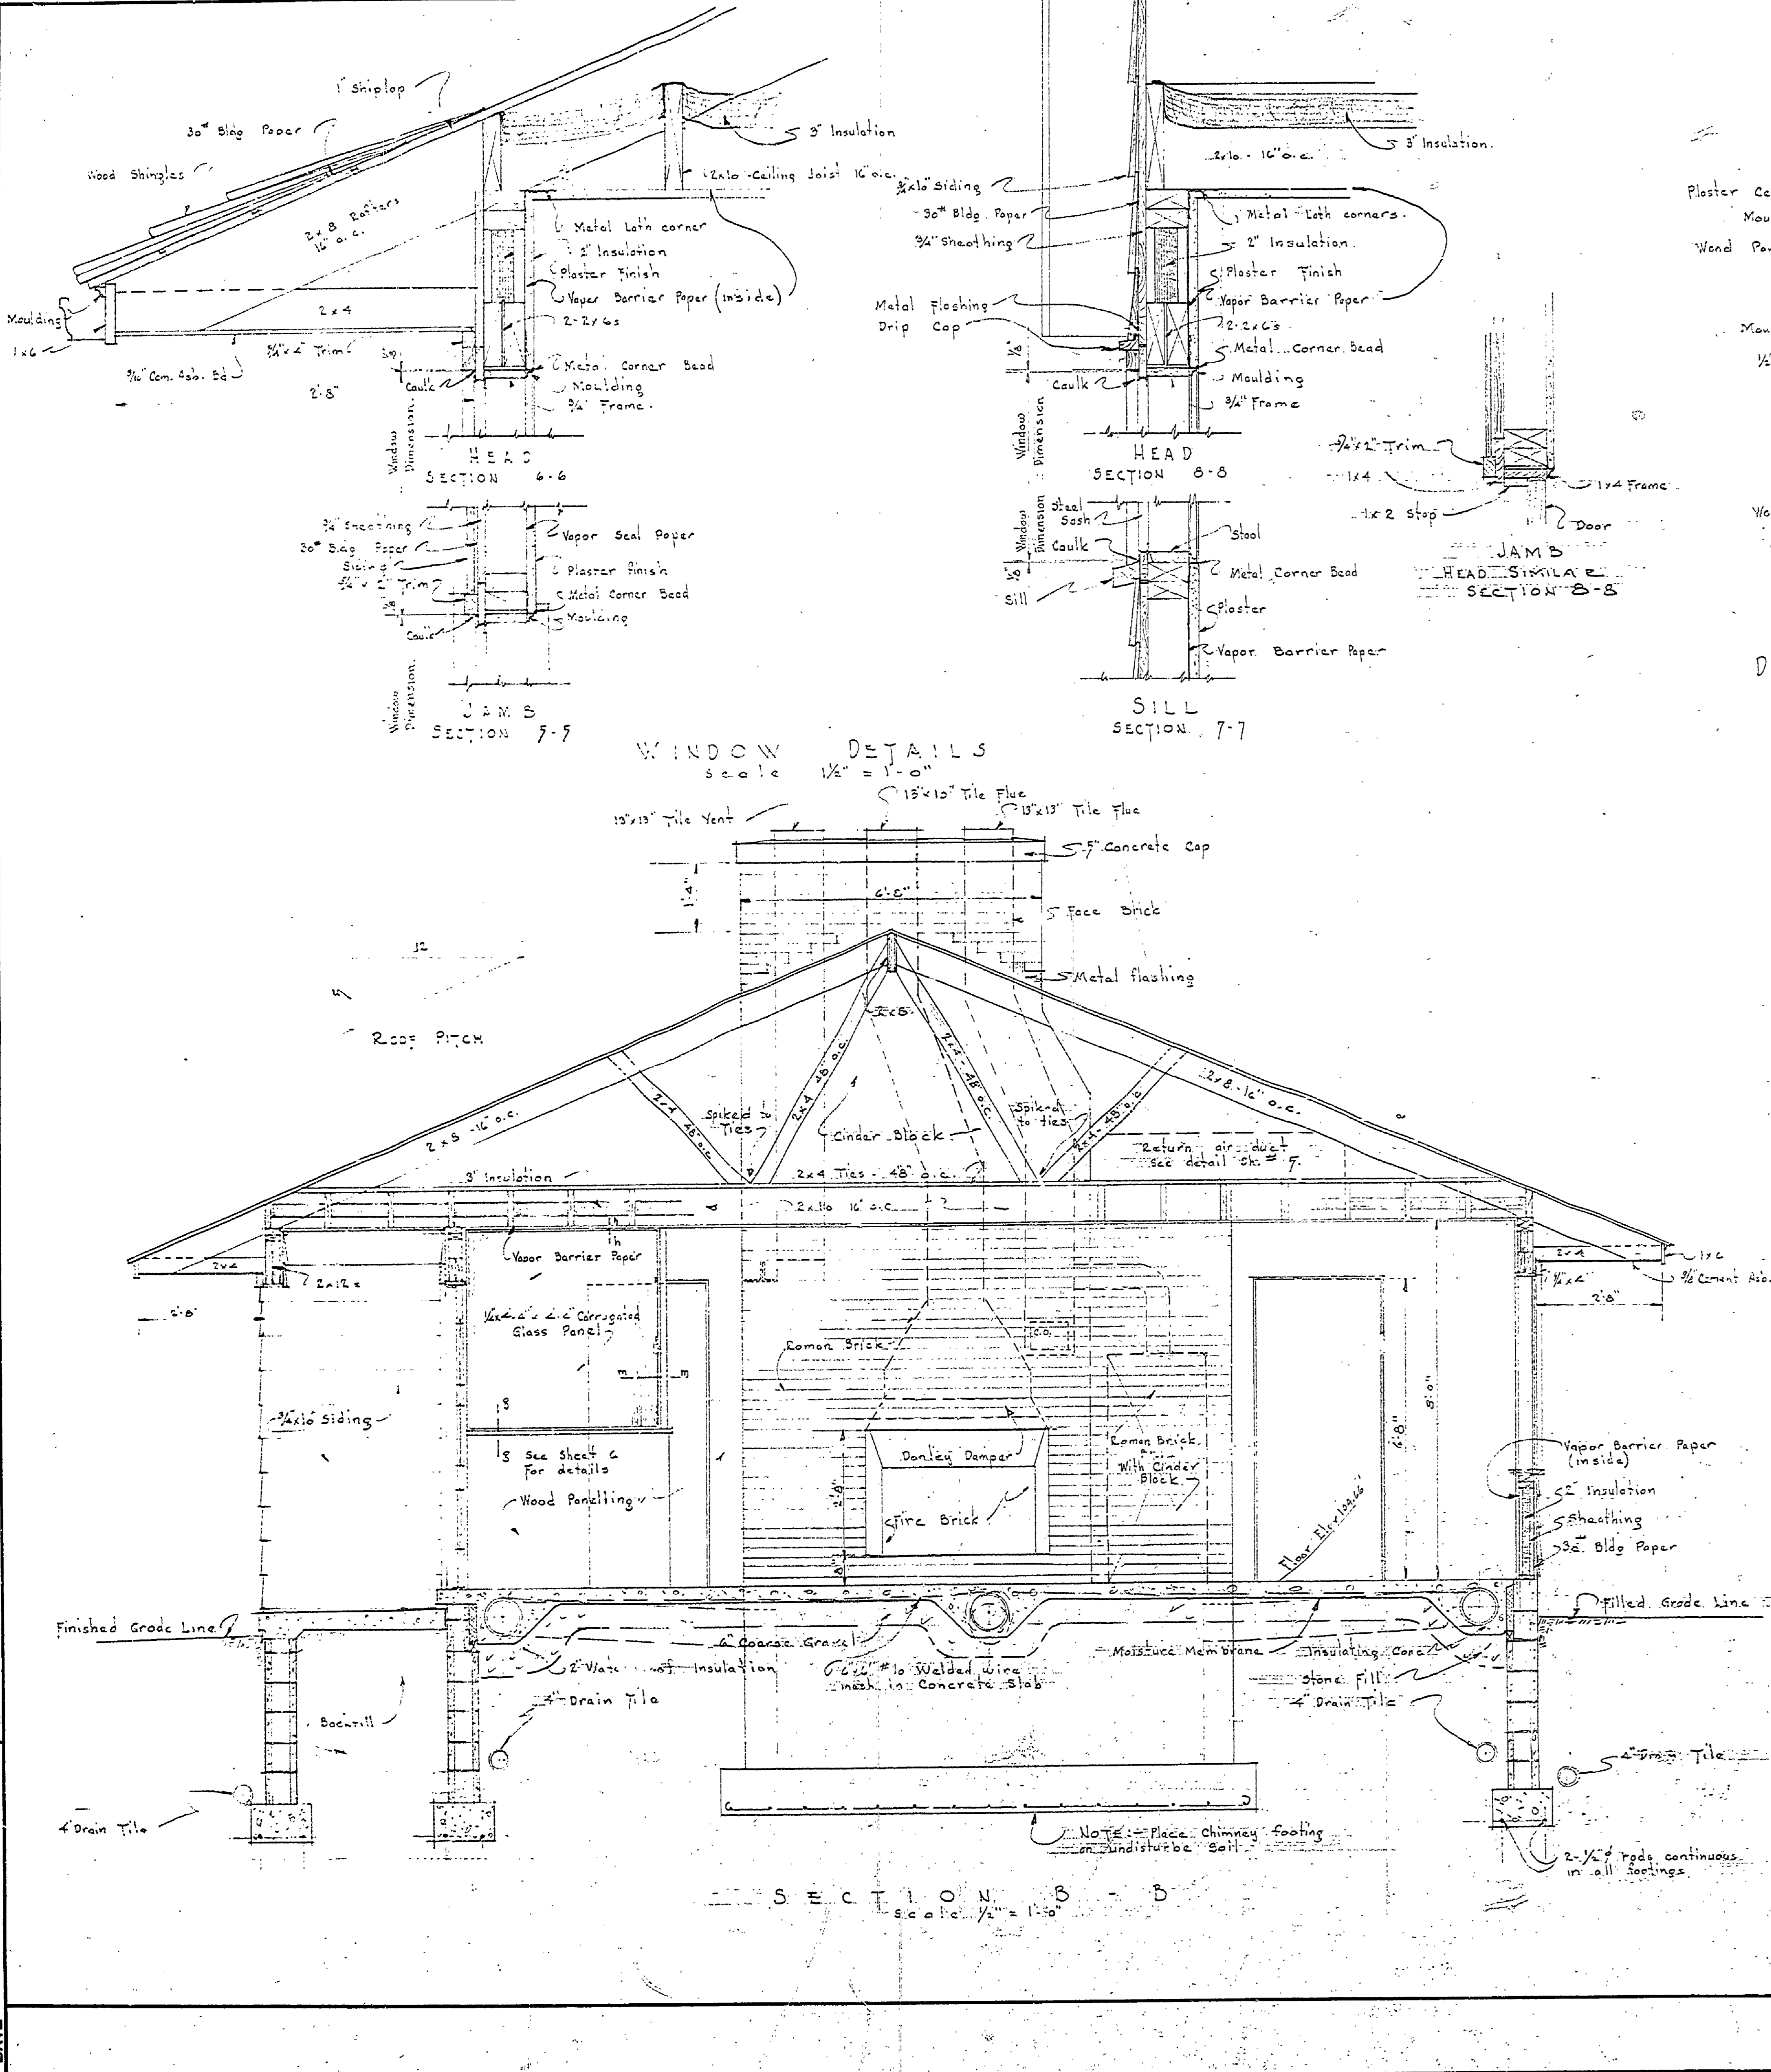 1" Shiplap
30# Bldg Paper
Wood Shingles
2x8 Rafters
16" o.c.
3" Insulation
2x10 Ceiling Joist 16" o.c.
Metal Lath corner
2" Insulation
Plaster Finish
Vapor Barrier Paper (inside)
2-2x6s
Metal Corner Bead
Moulding
3/4" Frame
Moulding
1x6
2x4
3/4"x4" Trim
Caulk
2'-8"
Window
Dimension
HEAD
SECTION 6-6
3/4" Sheathing
30# Bldg Paper
Siding
Caulk
Vapor Seal Paper
Plaster finish
Metal Corner Bead
Moulding
Window
Dimension
JAMB
SECTION 5-5
3" Insulation
2x10 - 16" o.c.
3/4x10 Siding
30# Bldg. Paper
3/4" Sheathing
Metal Lath corners
2" Insulation
Plaster Finish
Vapor Barrier Paper
2-2x6s
Metal Corner Bead
Moulding
3/4" Frame
Metal Flashing
Drip Cap
Caulk
Window
Dimension
HEAD
SECTION 8-8
Steel
Sash
Caulk
Sill
Window
Dimension
Stool
Metal Corner Bead
Plaster
Vapor Barrier Paper
SILL
SECTION 7-7
3/4"x2" Trim
1x4
1x2 Stop
1x4 Frame
Door
JAMB
HEAD SIMILAR
SECTION 8-8
Plaster Ce
Mou
Wood Pa
Mou
Wo
D
WINDOW DETAILS
Scale 1½" = 1'-0"
13"x13" Tile Vent
13"x13" Tile Flue
13"x13" Tile Flue
5" Concrete Cap
6'-8"
Face Brick
Metal flashing
12
5
ROOF PITCH
2x8
2x8 - 16" o.c.
2x4
48" o.c.
2x4 48" o.c.
2x4 - 48" o.c.
2x4 - 48" o.c.
2x8 - 16" o.c.
Spiked to
Ties
Spiked
to ties
Cinder Block
Return air duct
See detail Sh. # 7.
3" Insulation
2x4 Ties - 48" o.c.
2x10 16" o.c.
Vapor Barrier Paper
2x4
2x12s
2'-8"
Corrugated
Glass Panel
m
m
Roman Brick
C.O.
3/4x10 Siding
8
8
See Sheet 6
For details
Wood Panelling
Donley Damper
Fire Brick
Roman Brick
With Cinder
Block
6'-8"
8'-0"
Floor Elev 109.66
2x4
1x6
2'-8"
Vapor Barrier Paper
(inside)
2" Insulation
Sheathing
30# Bldg Paper
Finished Grade Line
Filled Grade Line
6" Coarse Gravel
Moisture Membrane
Insulating Conc.
6"x6" #10 Welded Wire
mesh in Concrete Slab
Stone Fill
4" Drain Tile
4" Drain Tile
Backfill
4" Drain Tile
4" Drain Tile
NOTE:- Place Chimney footing
on undisturbe Soil
2-½"ø rods continuous
in all footings
SECTION B-B
Scale ½" = 1'-0"